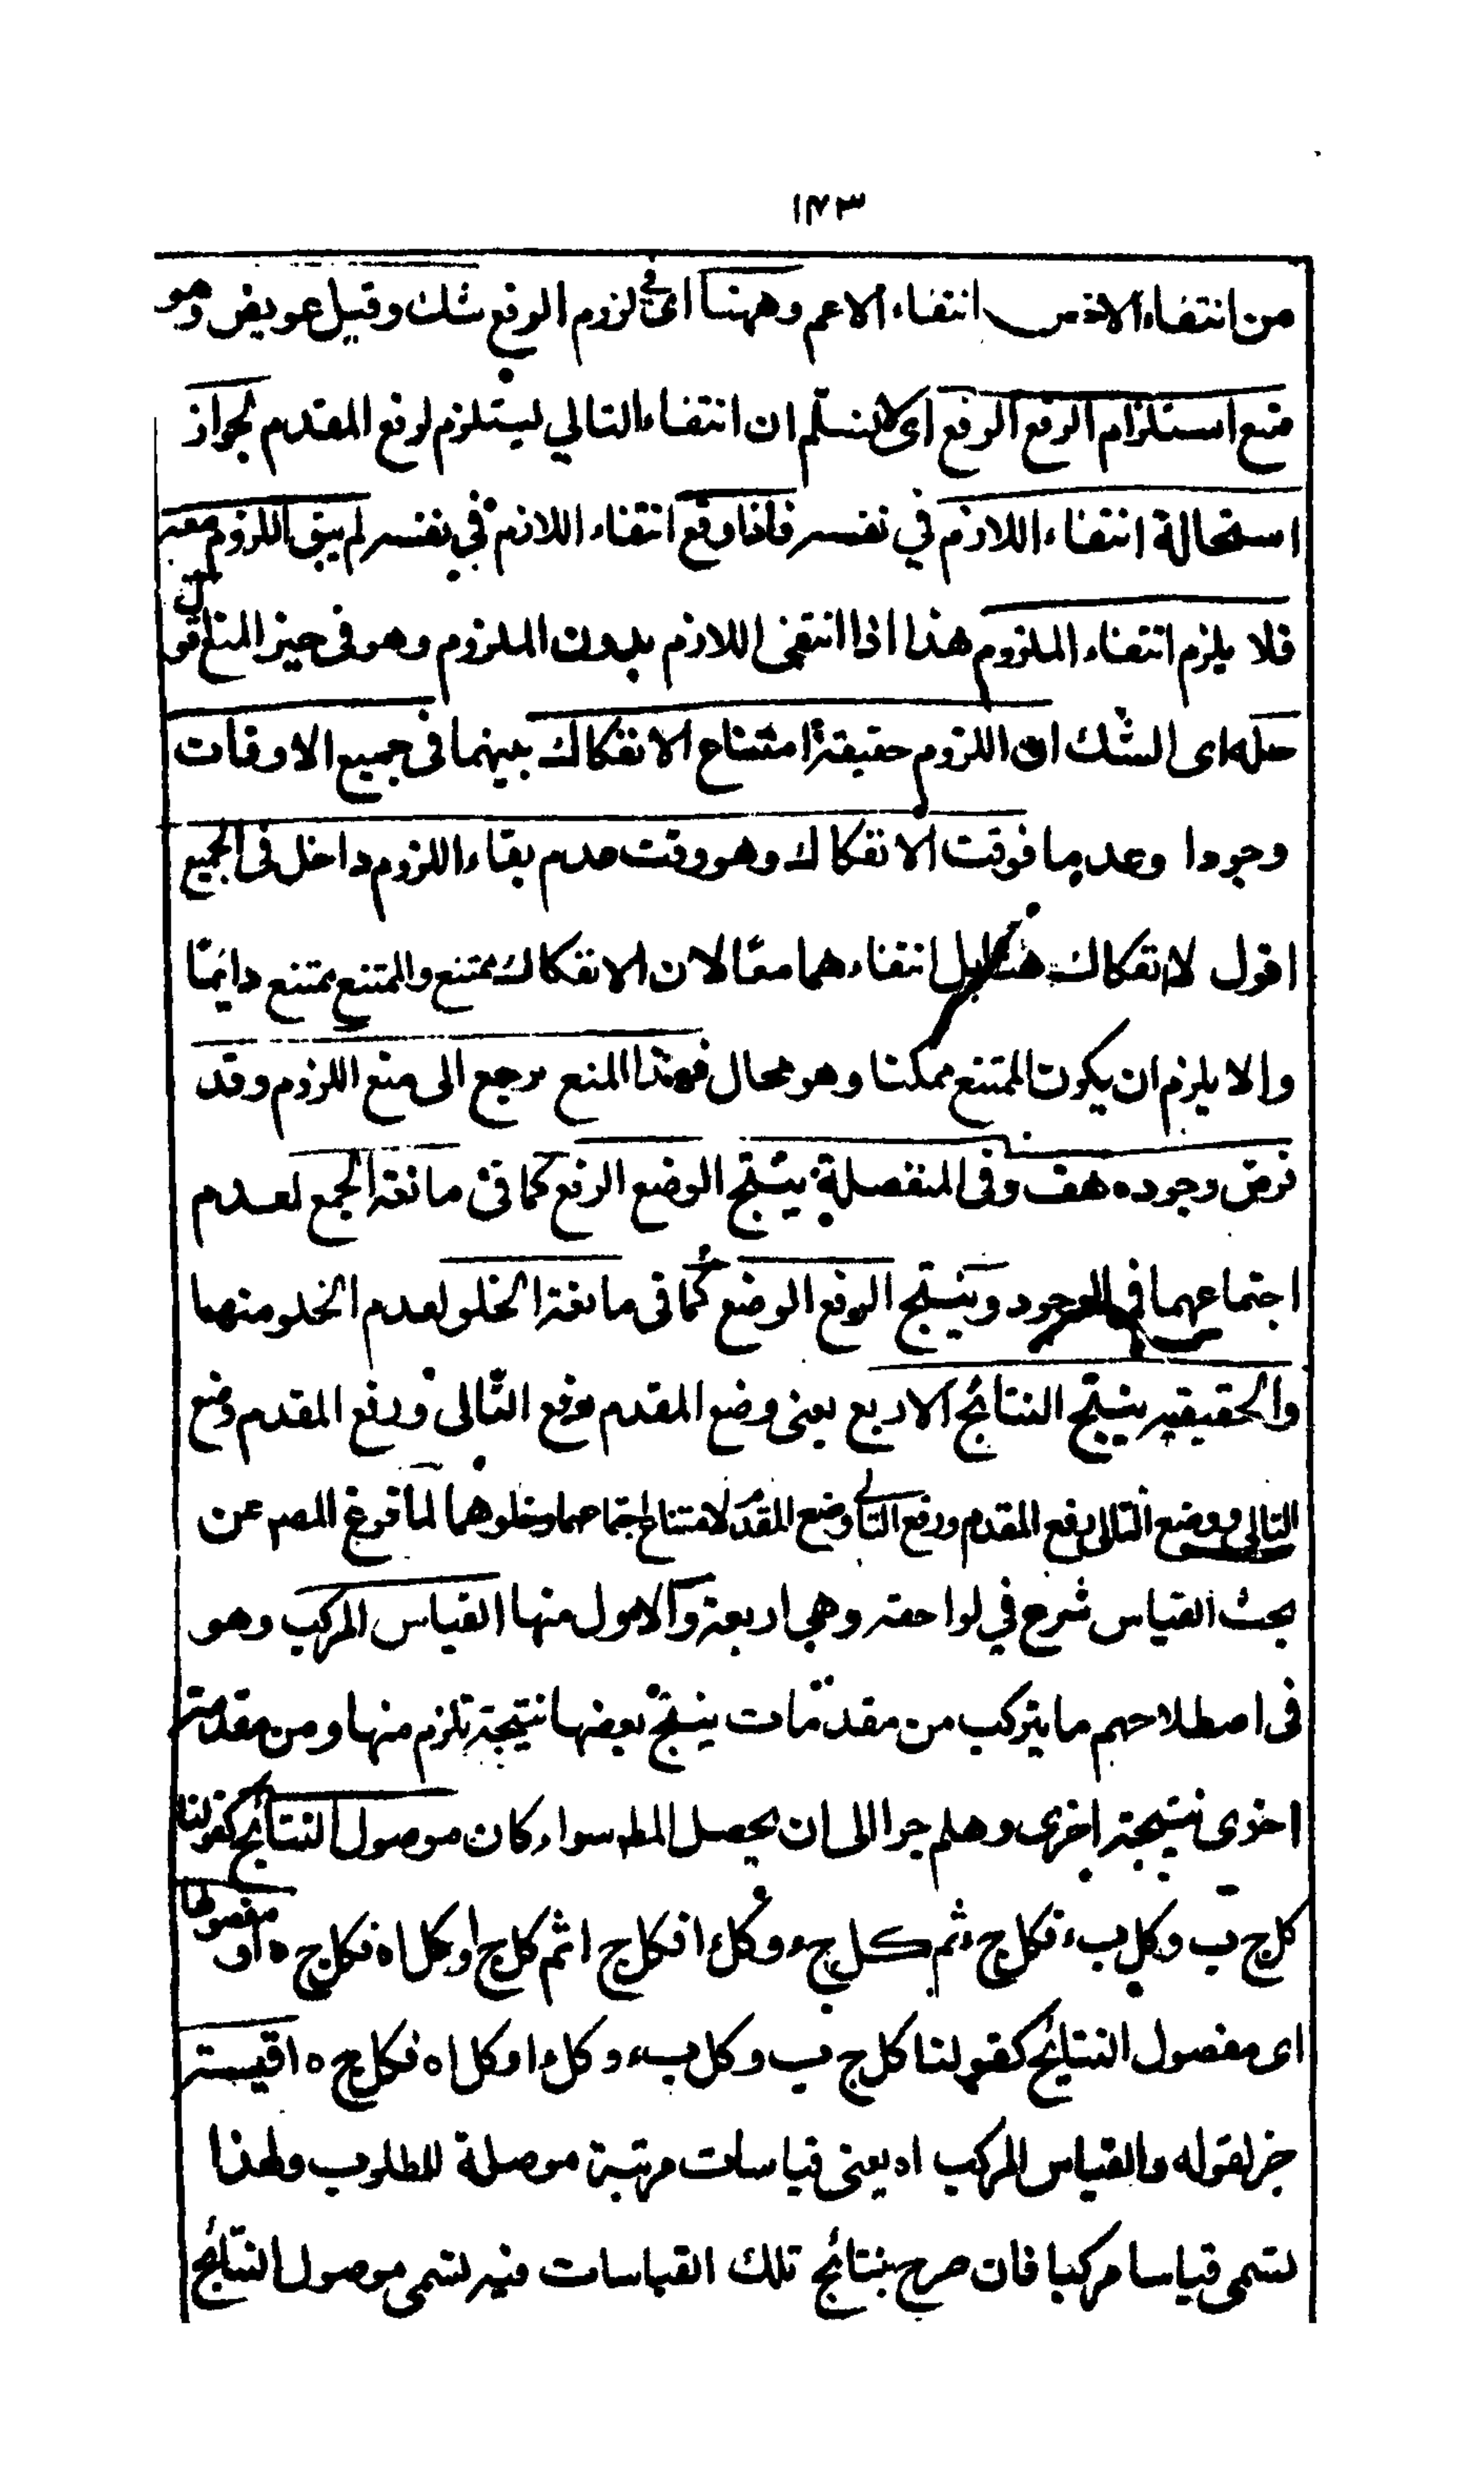 ١٧٣
من انتفاء الاخص انتفاء الاعم وههنا اى فى لزوم الرفع شك وقيل عويض وهو
منع استلزام الرفع الرفع اى لا نسلم ان انتفاء التالي يستلزم لرفع المقدم لجواز
استحالة انتفاء اللازم في نفسه فاذا وقع انتفاء اللازم في نفسه لم يبق اللزوم معه
فلا يلزم انتفاء الملزوم هذا اذا انتفى اللازم بدون الملزوم وهو فى حيز المنع اقول
حله اى الشك ان اللزوم حقيقة امتناع الانفكاك بينهما فى جميع الاوقات
وجودا وعدما فوقت الانفكاك وهو وقت عدم بقاء اللزوم داخل فى الجميع
اقول لا انفكاك هنا بل انتفاءهما معًا لان الانفكاك ممتنع والممتنع ممتنع دايمًا
والا يلزم ان يكون الممتنع ممكنا وهو محال فهذا المنع يرجع الى منع اللزوم وقد
فرض وجوده هف وفى المنفصلة ينتج الوضع الرفع كما فى مانعة الجمع لعدم
اجتماعهما في الوجود وينتج الرفع الوضع كما فى مانعة الخلو لعدم الخلو منهما
والحقيقيه ينتج النتائج الاربع يعنى وضع المقدم رفع التالى ورفع المقدم وضع
التالى ووضع التالى رفع المقدم ورفع التالى وضع المقدم لامتناع اجتماعهما وخلوهما لما فرغ المصه عن
بحث القياس شرع في لواحقه وهي اربعة والاول منها القياس المركب وهو
فى اصطلاحهم ما يتركب من مقدمات ينتج بعضها نتيجة تلزم منها ومن مقدمة
اخرى نتيجة اخرى وهلم جرا الى ان يحصل المطه سواء كان موصول النتائج كقولنا
كل ج ب وكل ب ء فكل ج ء ثم كل ج ء وكل ء ا فكل ج ا ثم كل ج ا وكل ا ه فكل ج ه او مفصولها
اى مفصول النتايج كقولنا كل ج ب وكل ب ء وكل ء ا وكل ا ه فكل ج ه اقيسة
خبر لقوله والقياس المركب اه يعنى قياسات مرتبة موصلة للمطلوب ولهذا
تسمى قياسا مركبا فان صرح بنتائج تلك القياسات فيه تسمى موصول النتايج